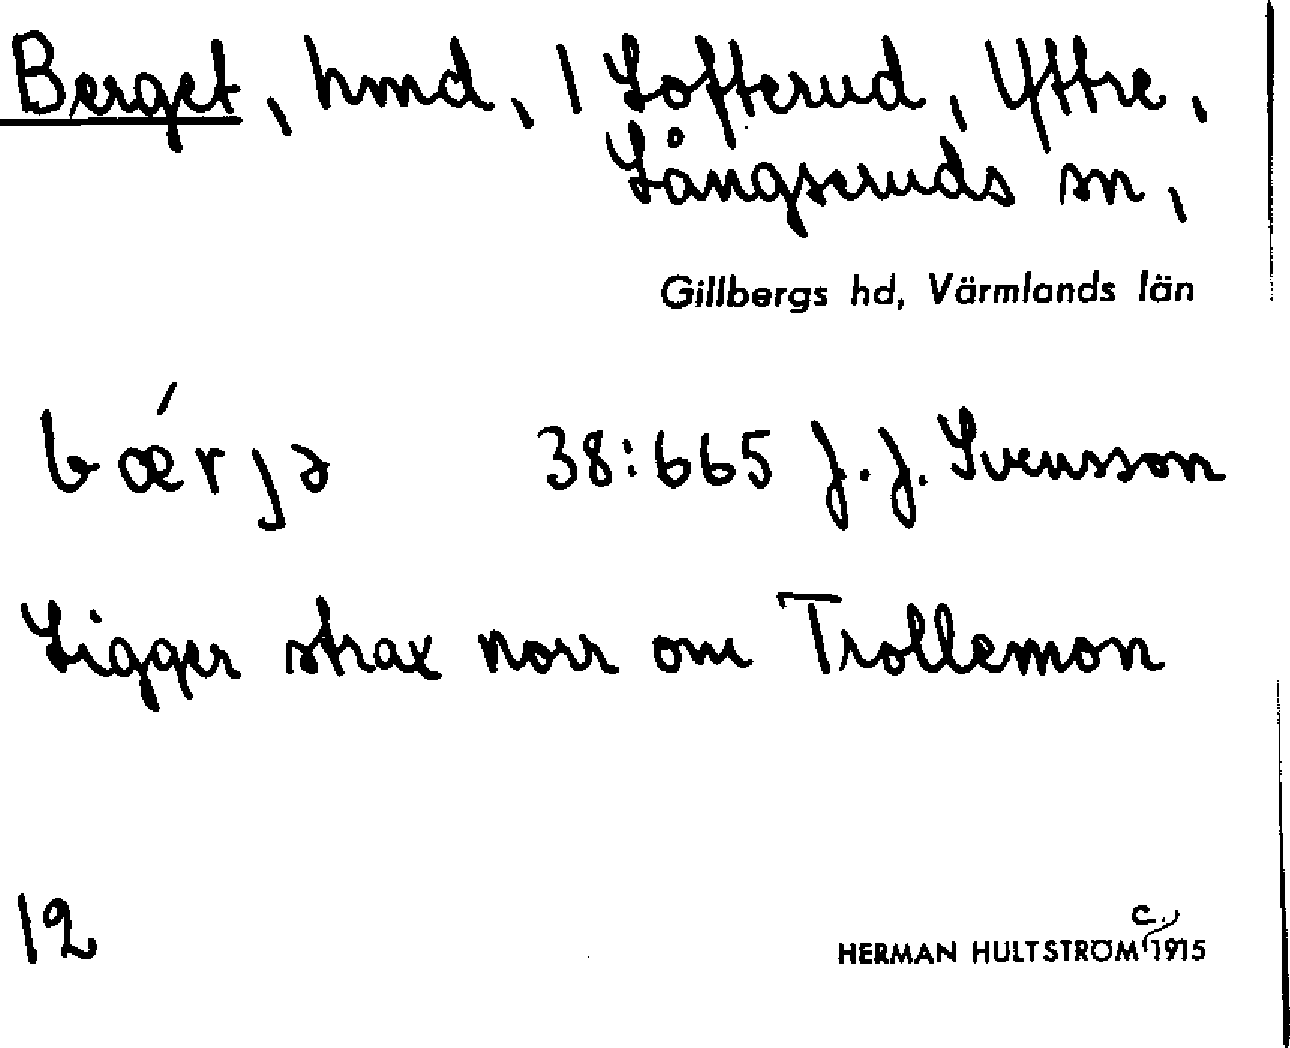 Berget, hmd, 1 Lofterud, Yttre,
Långseruds sn,
Gillbergs hd, Värmlands län
bǽrjə 38:665 J. J. Svensson
Ligger strax norr om Trollemon
12
HERMAN HULTSTRÖM c. 1915